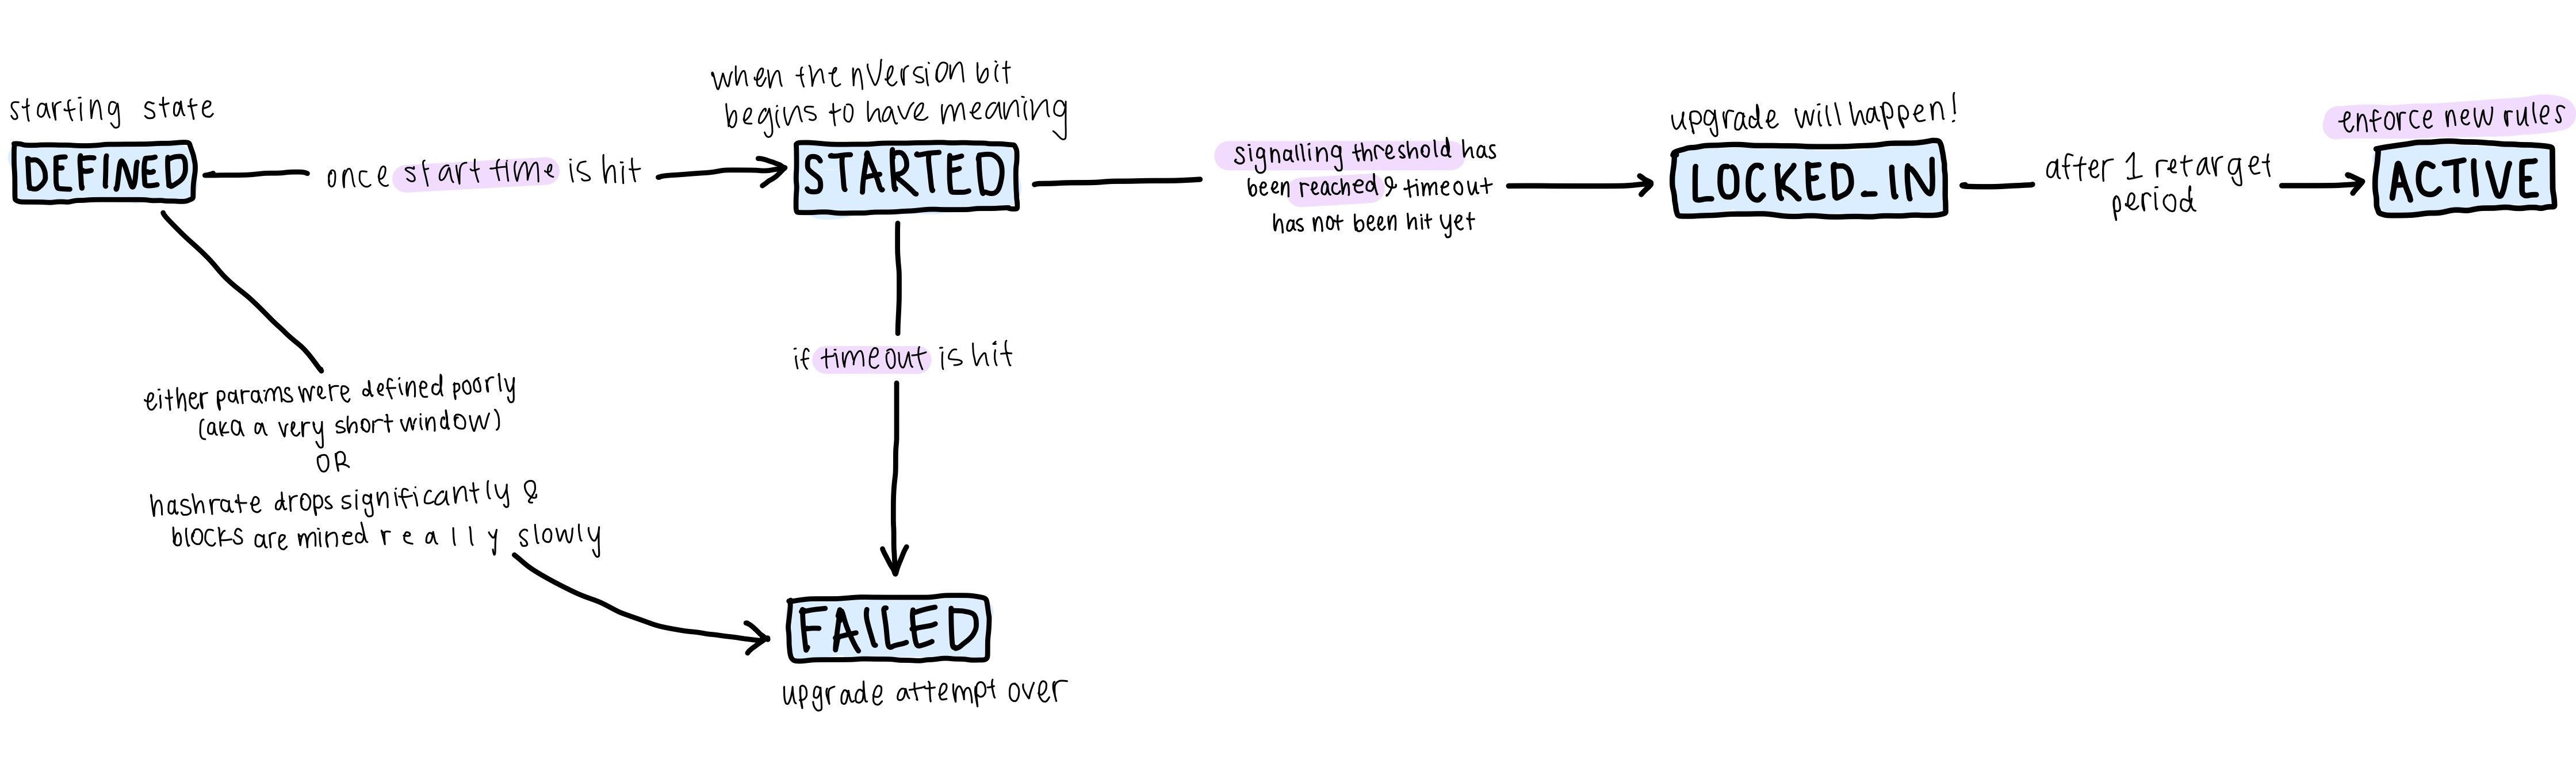 starting state
DEFINED
once start time is hit
when the nVersion bit
begins to have meaning
STARTED
signalling threshold has
been reached & timeout
has not been hit yet
upgrade will happen!
LOCKED_IN
after 1 retarget
period
enforce new rules
ACTIVE
if timeout is hit
either params were defined poorly
(aka a very short window)
OR
hashrate drops significantly &
blocks are mined r e a l l y slowly
FAILED
upgrade attempt over